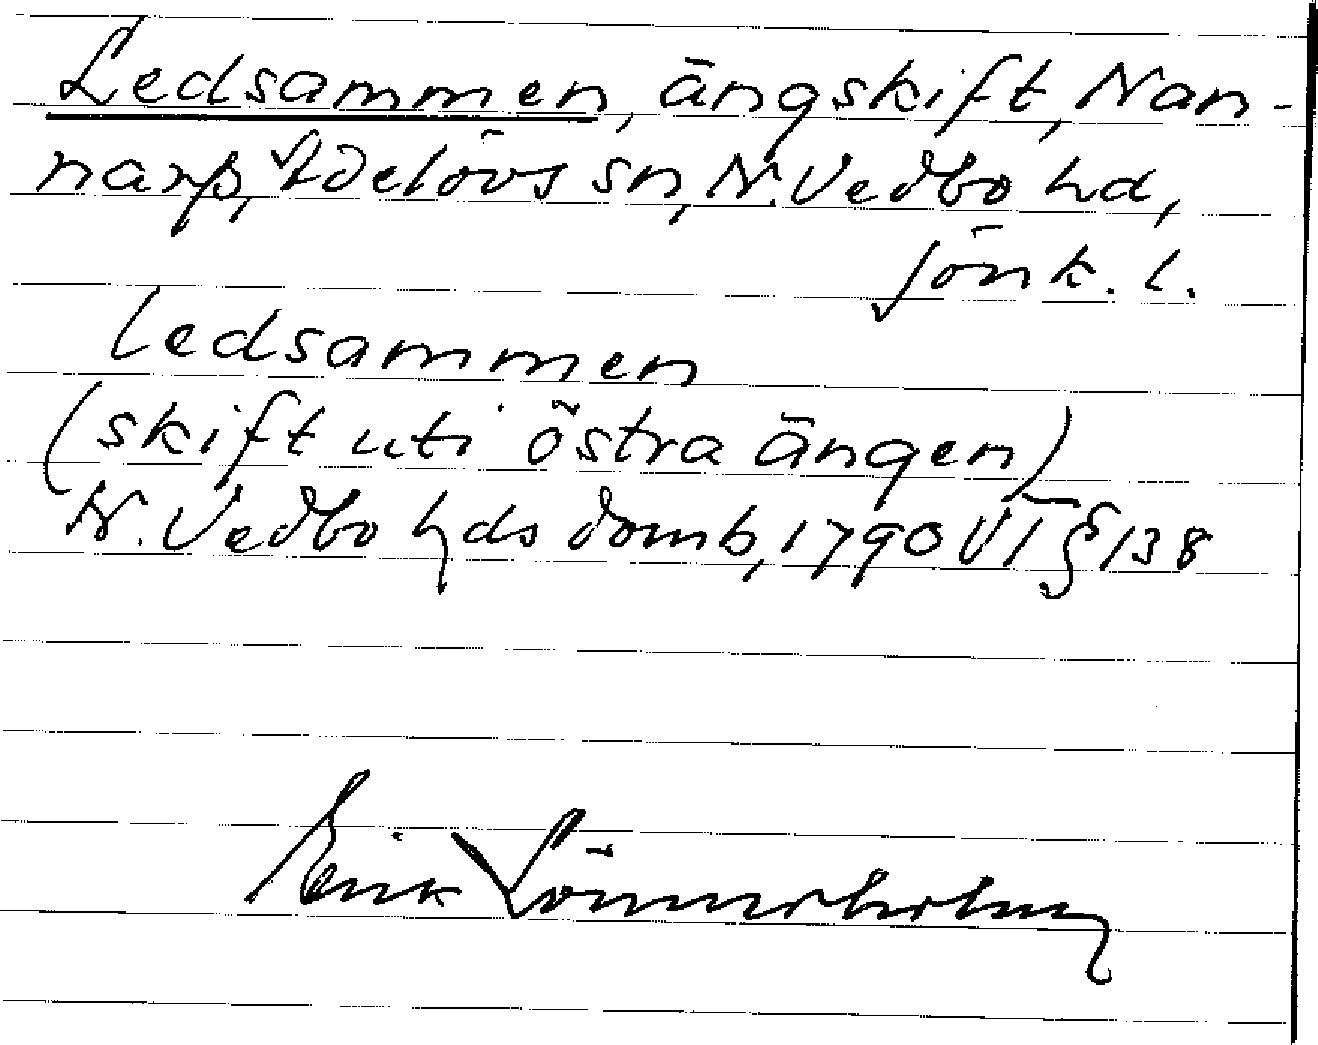 Ledsammen, ängskift, Nan-
narp, Adelövs sn, N. Vedbo hd,
Jönk. l.
Ledsammen
(skift uti östra ängen)
N. Vedbo hds domb, 1790 VT § 138
Erik Lönnerholm